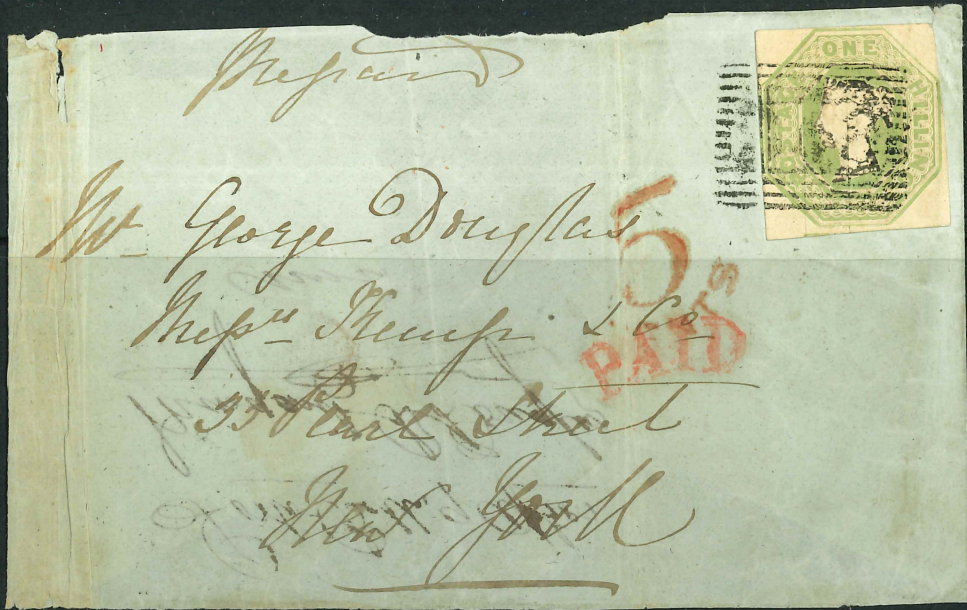 Prepaid
ONE SHILLING
Mr George Douglas
5
CTS
Messrs Kemp & Co
PAID
35 Pearl Street
New York